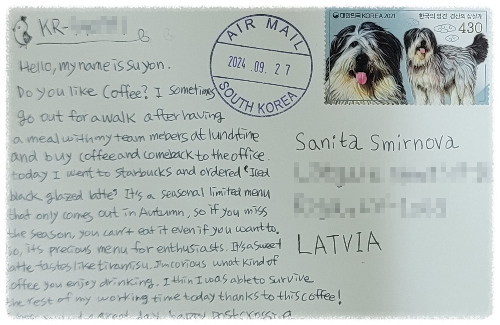 KR-
Hello, my name is Suyon.
Do you like Coffee? I sometimes
go out for a walk after having
a meal with my team mebers at lunchtime
and buy coffee and comeback to the office.
today I went to Starbucks and ordered "Iced
black glazed latte" It's a seasonal limited menu
that only comes out in Autumn, so if you miss
the season, you can't eat it even if you want to.
so, it's precious menu for enthusiasts. It's a sweet
latte tastes like tiramisu. I'm curious what kind of
coffee you enjoy drinking. I thin I was able to survive
the rest of my working time today thanks to this coffee!
great day, happy postcrossing
AIR MAIL
2024.09.27
SOUTH KOREA
대한민국 KOREA 2021
한국의 토종견 경산의 삽살개
430
Sanita Smirnova
LATVIA